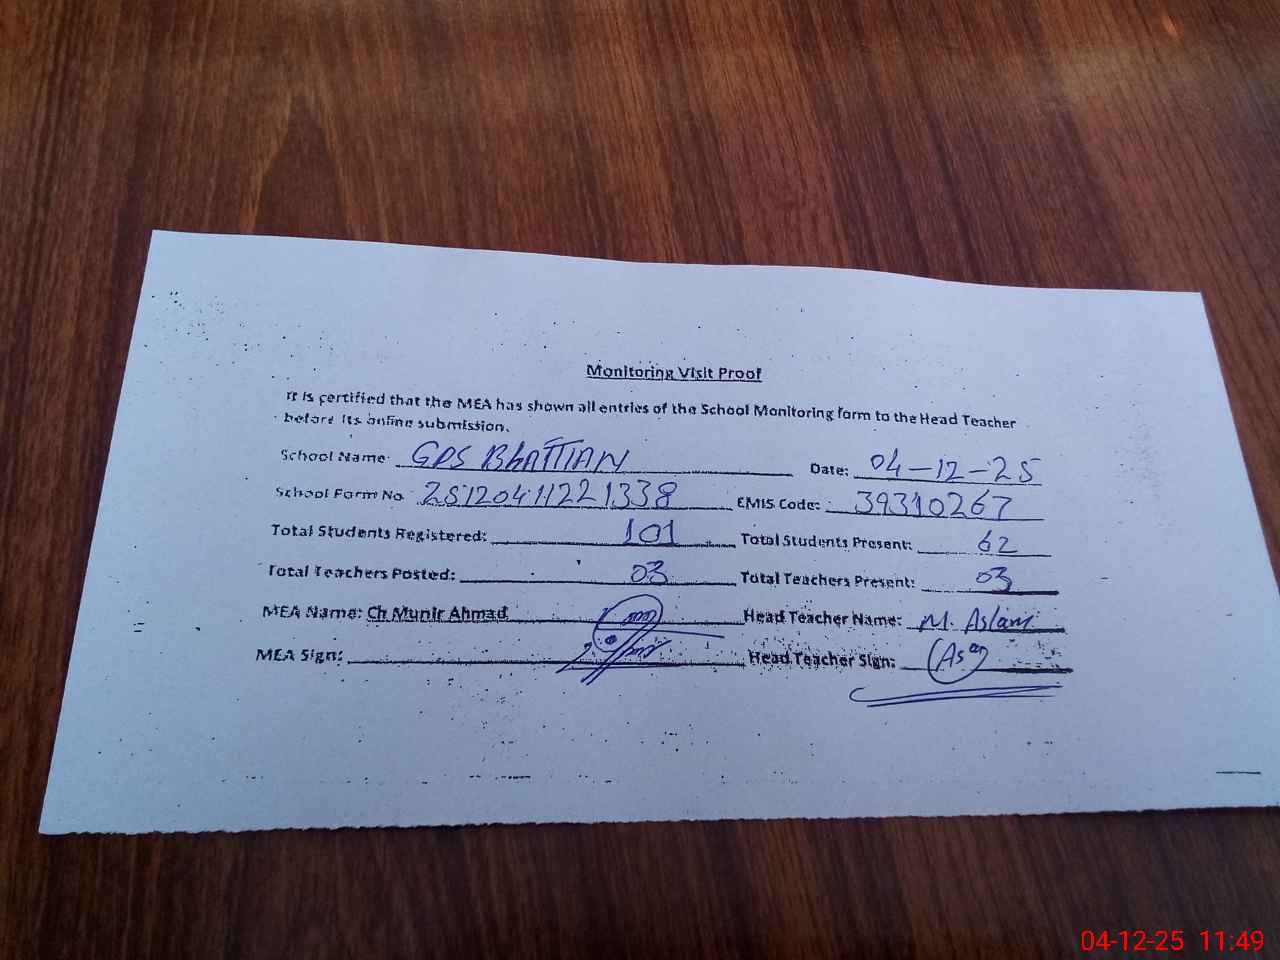 Monitoring Visit Proof
It is certified that the MEA has shown all entries of the School Monitoring form to the Head Teacher
before its online submission.
School Name GPS BhATTIAN Date: 04-12-25
School Form No. 25120411221338 EMIS Code: 39310267
Total Students Registered: 101 Total Students Present: 62
Total Teachers Posted: 03 Total Teachers Present: 03
MEA Name: Ch Munir Ahmad Head Teacher Name: M. Aslam
MEA Sign: Head Teacher Sign:
04-12-25 11:49